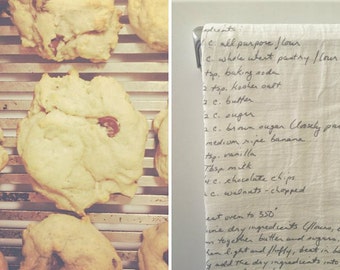 c. all purpose flour
c. whole wheat pastry flour
tsp. baking soda
tsp. kosher salt
c. butter
c. sugar
c. brown sugar (loosely pa
medium ripe banana
tsp. vanilla
Tbsp milk
c. chocolate chips
c. walnuts - chopped
eat oven to 350°
dry ingredients (flours,
together butter and sugars,
light and fluffy, beat in
add the dry ingredients into